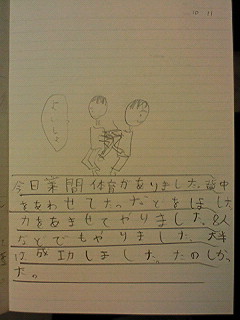 10 11
せいしょ
今日業間体育がありました。背中
をあわせてたったをしました。
力をあわせてやりました。8人
などでもやりました。大
は成功しました。たのしかっ
た。